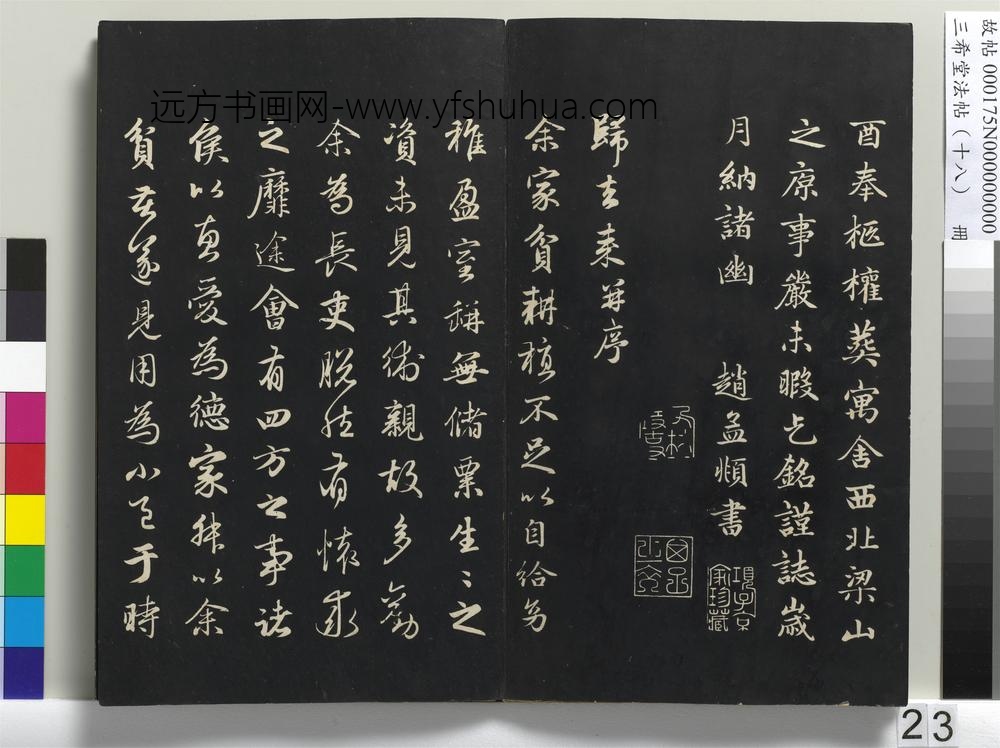 酉奉柩權葬寓舍西北梁山
之原事嚴未暇乞銘謹誌歲
月納諸幽 趙孟頫書
項子京家珍藏
歸去来并序
余家貧耕植不足以自給幼
稚盈室缾無儲粟生〻之
資未見其術親故多勸
余為長吏脱然有懷求
之靡途會有四方之事諸
侯以惠愛為德家叔以余
貧苦遂見用為小邑于時
远方书画网-www.yfshuhua.com
故帖 000175N000000000
三希堂法帖（十八） 冊
23